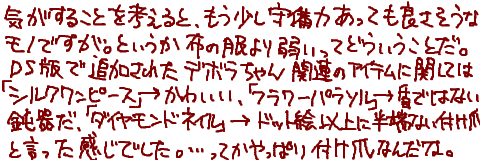 気がすることを考えると、もう少し守備力あっても良さそうな
モノですが。というか布の服より弱いってどういうことだ。
DS版で追加されたデボラちゃん関連のアイテムに関しては
「シルクワンピース」→かわいい、「フラワーパラソル」→盾ではない
鈍器だ、「ダイヤモンドネイル」→ドット絵以上に半端ない付け爪
と言った感じでした。…ってかやっぱり付け爪なんだな。